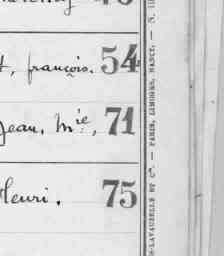 françois. 54
Jean, Mie, 71
Henri. 75
H-LAVAUZELLE ET Cie. — PARIS, LIMOGES, NANCY. — N.